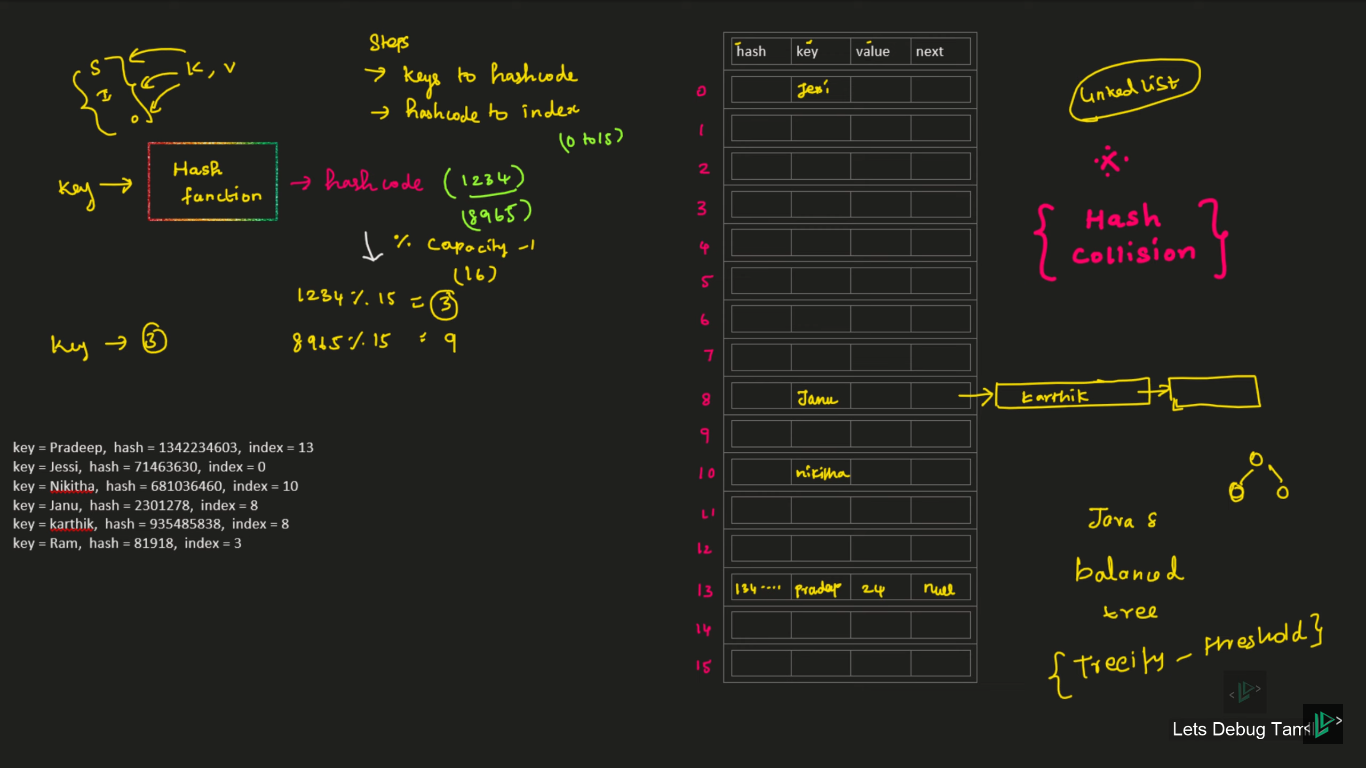 Steps
S
I
O
K, V
→ keys to hashcode
→ hashcode to index
(0 to 15)
Key →
Hash
function
→ hashcode (1234)
(8965)
% Capacity -1
(16)
1234 % 15 = 3
Key → 3
8965 % 15 = 9
key = Pradeep, hash = 1342234603, index = 13
key = Jessi, hash = 71463630, index = 0
key = Nikitha, hash = 681036460, index = 10
key = Janu, hash = 2301278, index = 8
key = karthik, hash = 935485838, index = 8
key = Ram, hash = 81918, index = 3
hash key value next
0 Jessi
1
2
3
4
5
6
7
8 Janu → karthik →
9
10 nikitha
11
12
13 134.... pradeep 24 null
14
15
Linked List
Hash
Collision
Java 8
balanced
tree
{Treeify - threshold}
Lets Debug Tamil